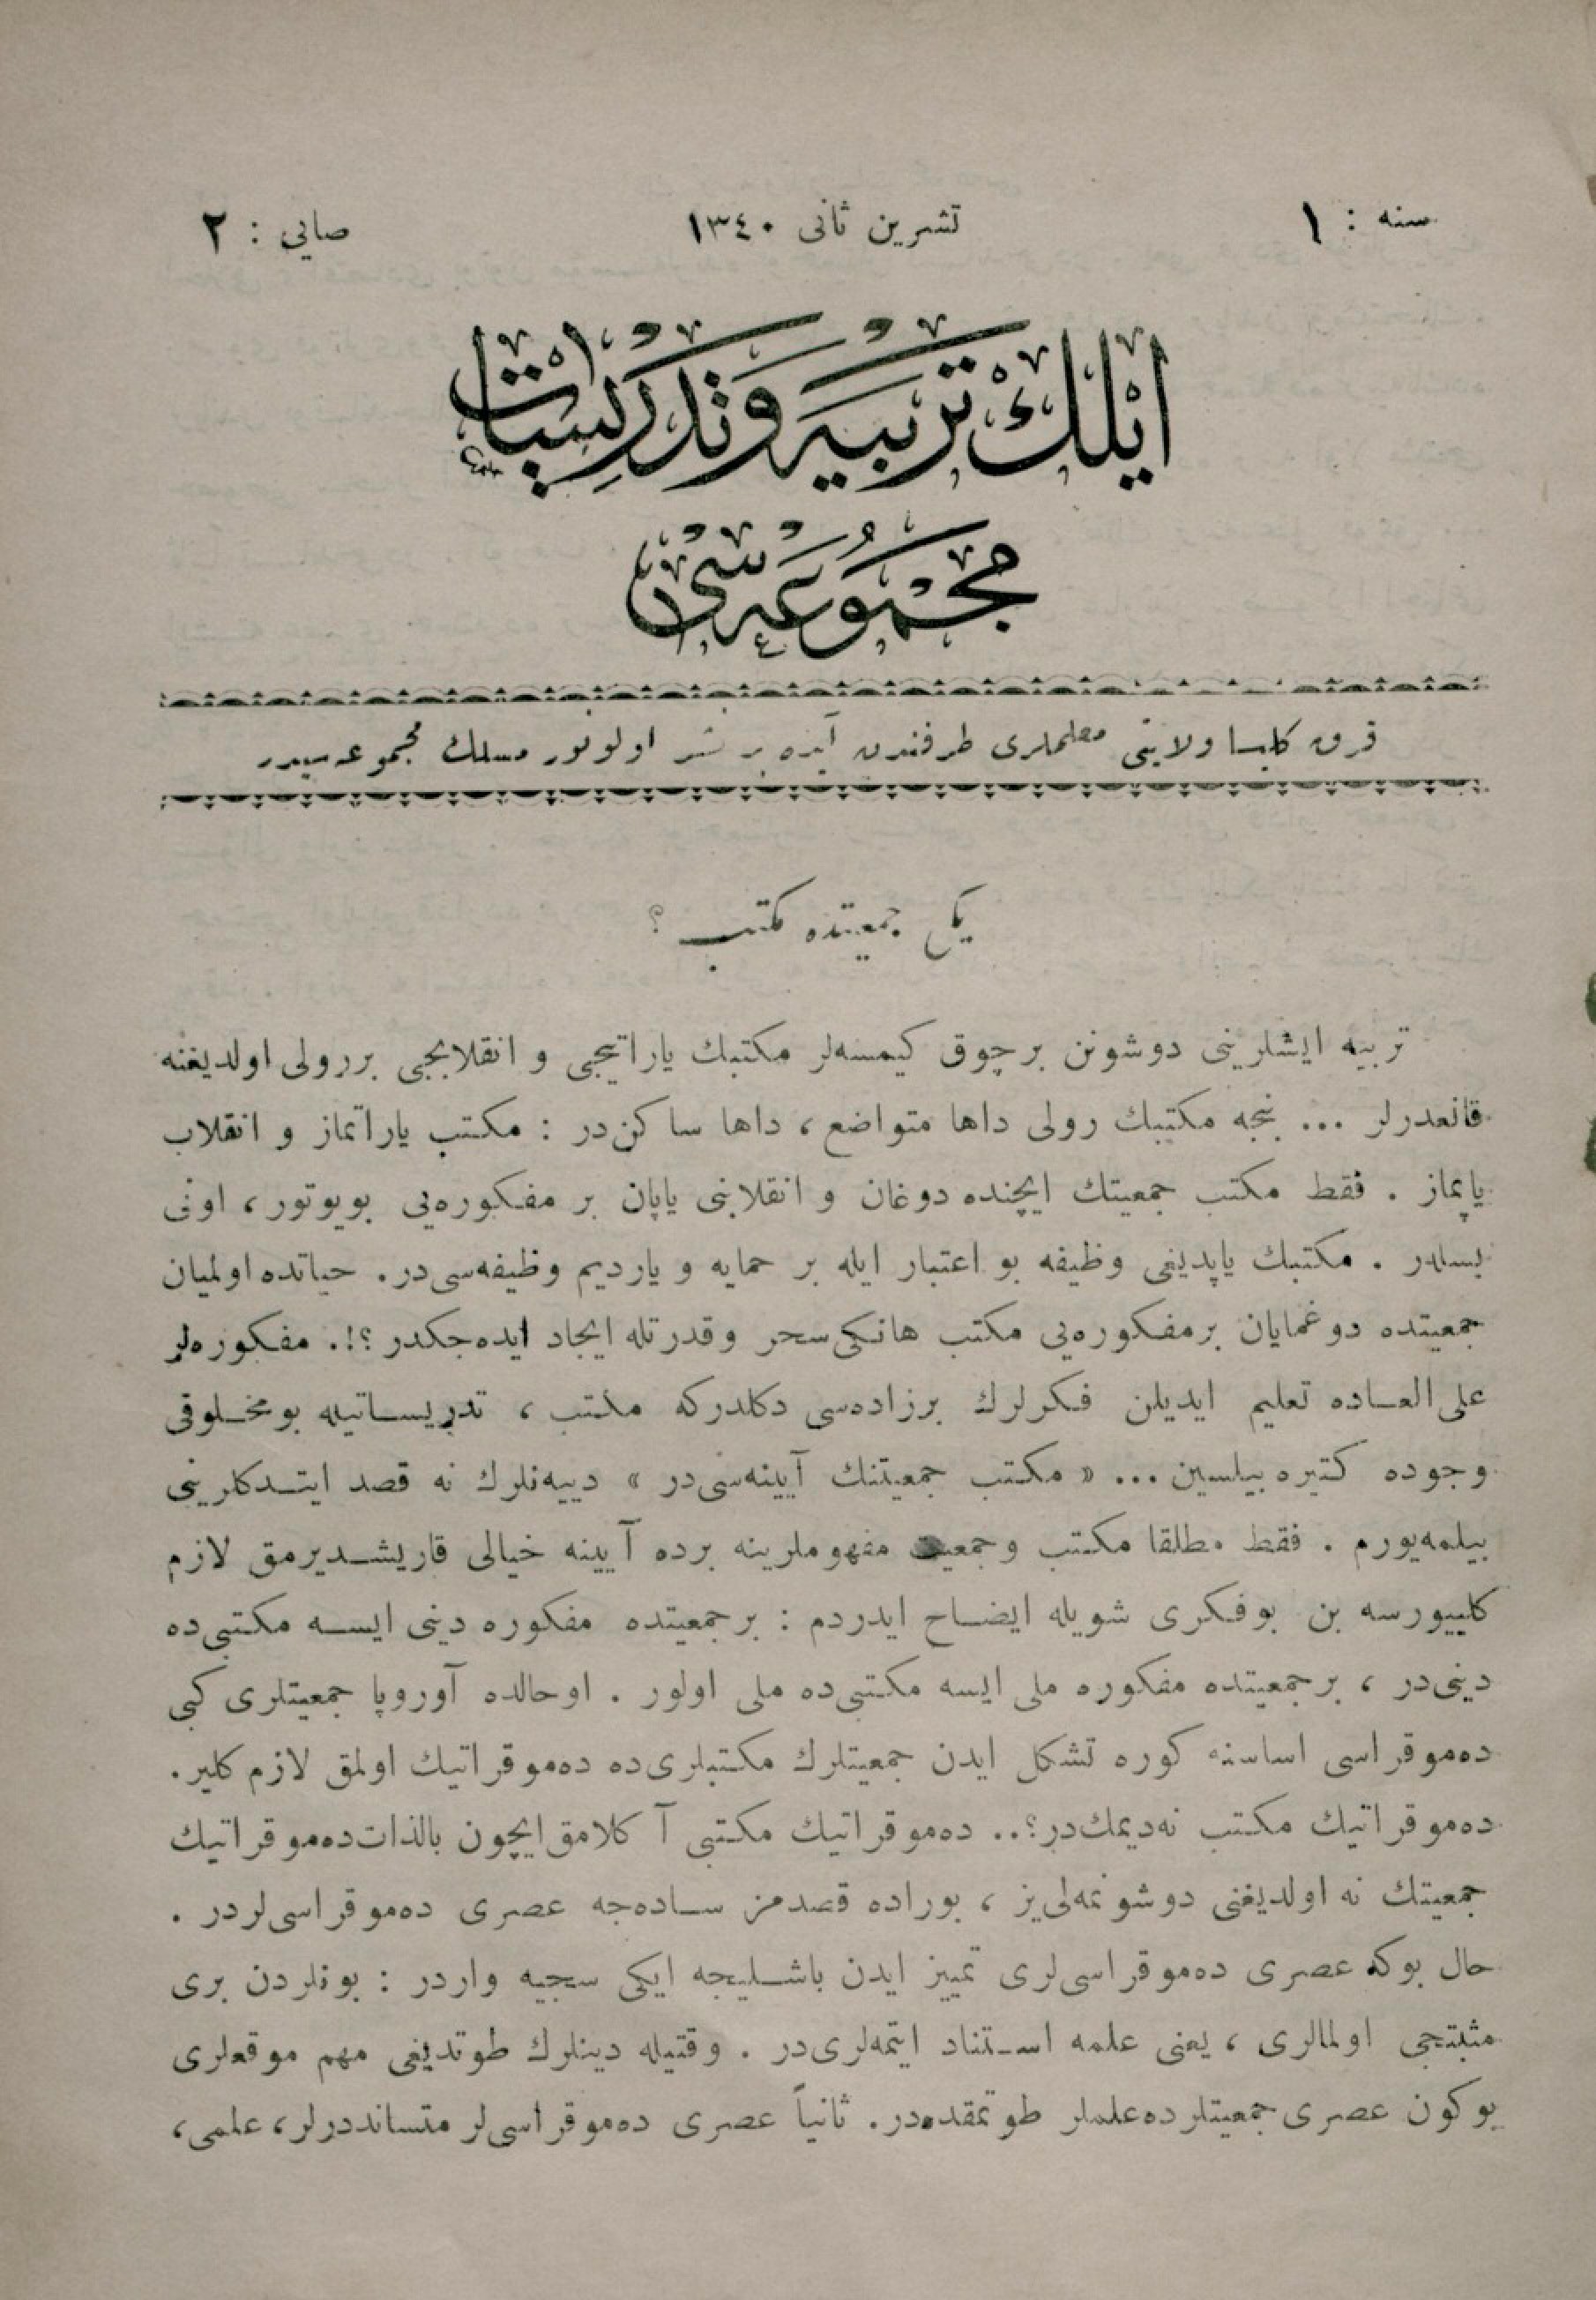 سنه : ١
تشرین ثانی ١٣٤٠
صایی : ٢
ایلك تربیه وتدریسات
مجموعه‌سی
قرق کلیسا ولایتی معلملری طرفندن آیده بر نشر اولونور مسلك مجموعه سیدر
یکی جمعیتده مکتب ؟
تربیه ایشلرینی دوشونن برچوق کیمسه‌لر مکتبك یاراتیجی و انقلابجی بررولی اولدیغنه
قانعدرلر ... بنجه مکتبك رولی داها متواضع ، داها ساکن‌در : مکتب یاراتماز و انقلاب
یاپماز . فقط مکتب جمعیتك ایچنده دوغان و انقلابنی یاپان بر مفکوره‌یی بویوتور ، اونی
بسلدر . مکتبك یاپدیغی وظیفه بو اعتبار ایله بر حمایه و یاردیم وظیفه‌سی‌در. حیاتده اولمیان
جمعیتده دوغمایان برمفکوره‌یی مکتب هانکی‌سحر وقدرتله ایجاد ایده‌جکدر ؟!. مفکوره‌لر
علی‌العاده تعلیم ایدیلن فکرلرك برزاده‌سی دکلدرکه مکتب ، تدریساتیله بومخلوقی
وجوده کتیره بیلسین ... « مکتب جمعیتنك آیینه‌سی‌در » دییه‌نلرك نه قصد ایتدکلرینی
بیلمه‌یورم . فقط مطلقا مکتب وجمعیت مفهوملرینه برده آیینه خیالی قاریشدیرمق لازم
کلییورسه بن بوفکری شویله ایضاح ایدردم : برجمعیتده مفکوره دینی ایسه مکتبی‌ده
دینی‌در ، برجمعیتده مفکوره ملی ایسه مکتبی‌ده ملی اولور . اوحالده آوروپا جمعیتلری کبی
ده‌موقراسی اساسنه کوره تشکل ایدن جمعیتلرك مکتبلری‌ده ده‌موقراتیك اولمق لازم کلیر.
ده‌موقراتیك مکتب نه‌دیمك‌در؟.. ده‌موقراتیك مکتبی آکلامق ایچون بالذات‌ده‌موقراتیك
جمعیتك نه اولدیغنی دوشونمه‌لی‌یز ، بوراده قصدمز ساده‌جه عصری ده‌موقراسی‌لردر .
حال بوکه عصری ده‌موقراسی‌لری تمییز ایدن باشلیجه ایکی سجیه واردر : بونلردن بری
مثبتجی اولمالری ، یعنی علمه استناد ایتمه‌لری‌در . وقتیله دینلرك طوتدیغی مهم موقعلری
بوکون عصری جمعیتلرده‌علملر طوتمقده‌در. ثانیاً عصری ده‌موقراسی‌لر متسانددرلر، علمی،